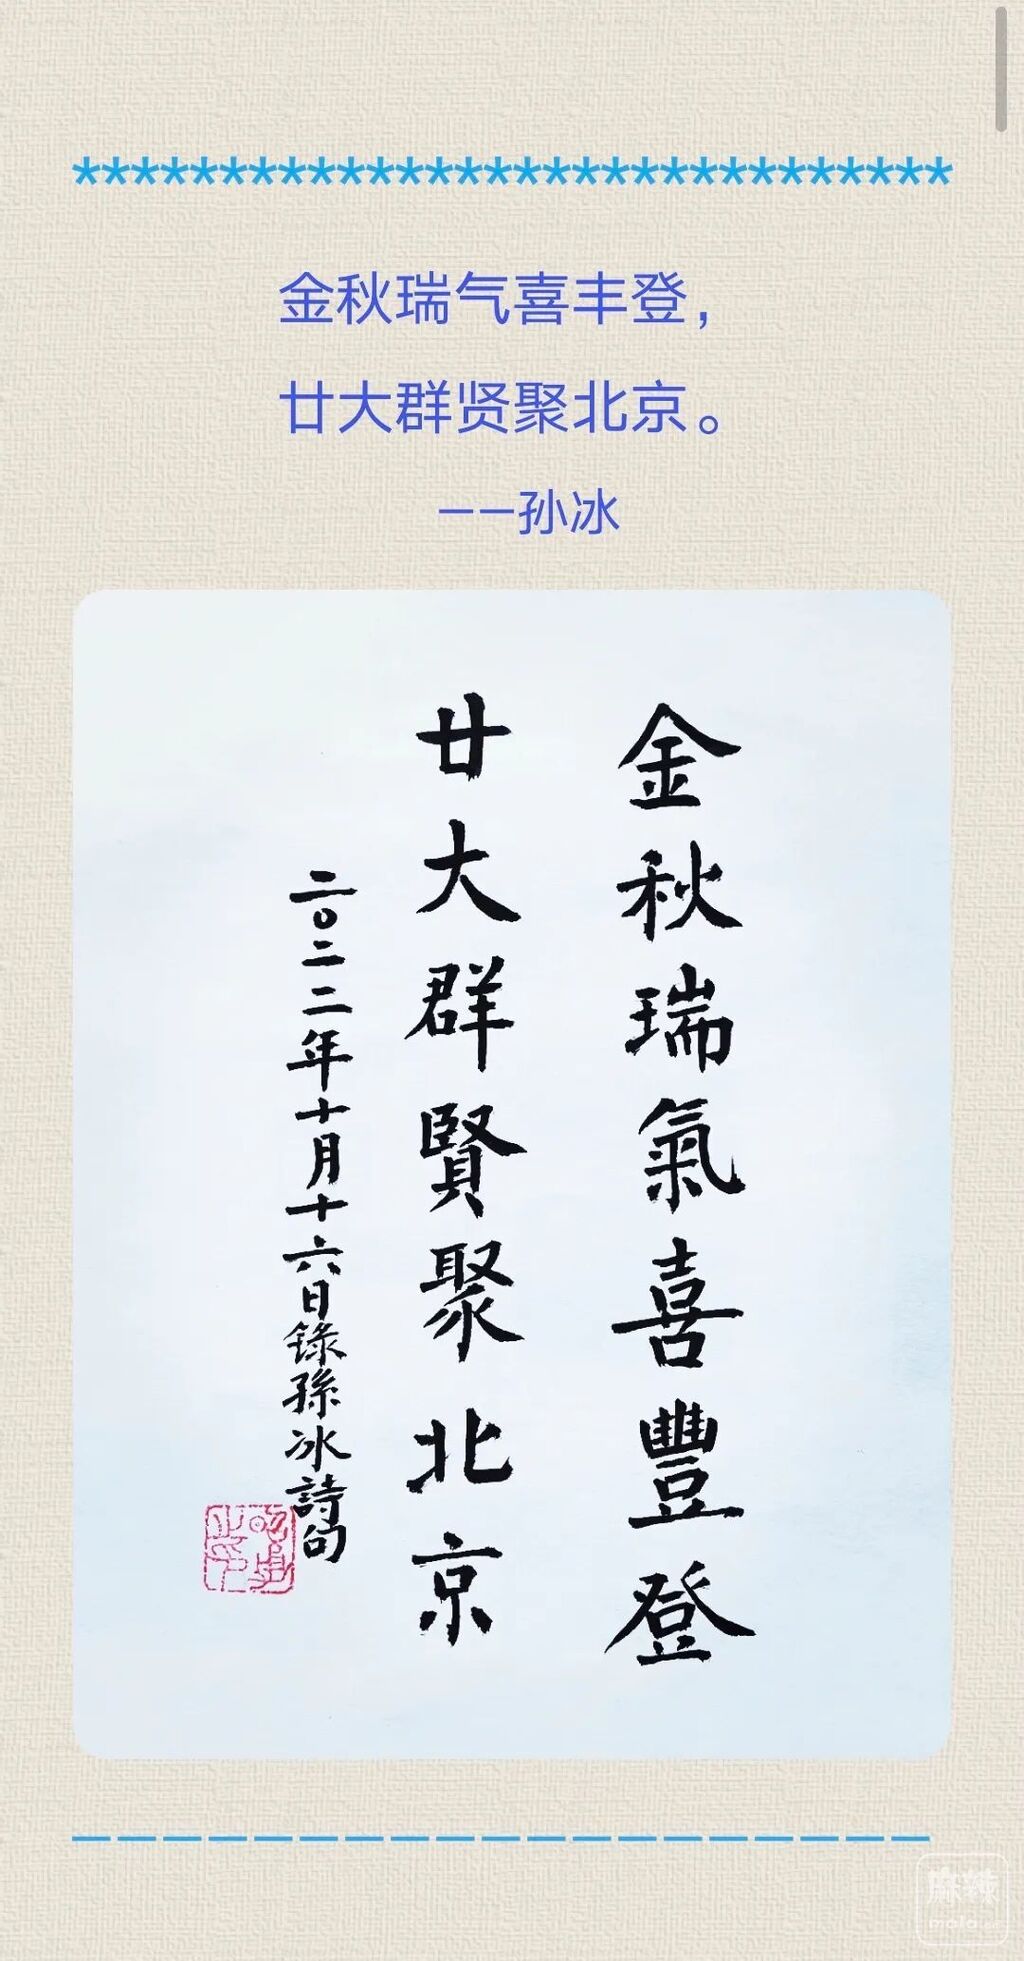 ******************************
金秋瑞气喜丰登，
廿大群贤聚北京。
——孙冰
金秋瑞氣喜豐登
廿大群賢聚北京
二〇二二年十月十六日錄孫冰詩句
麻辣